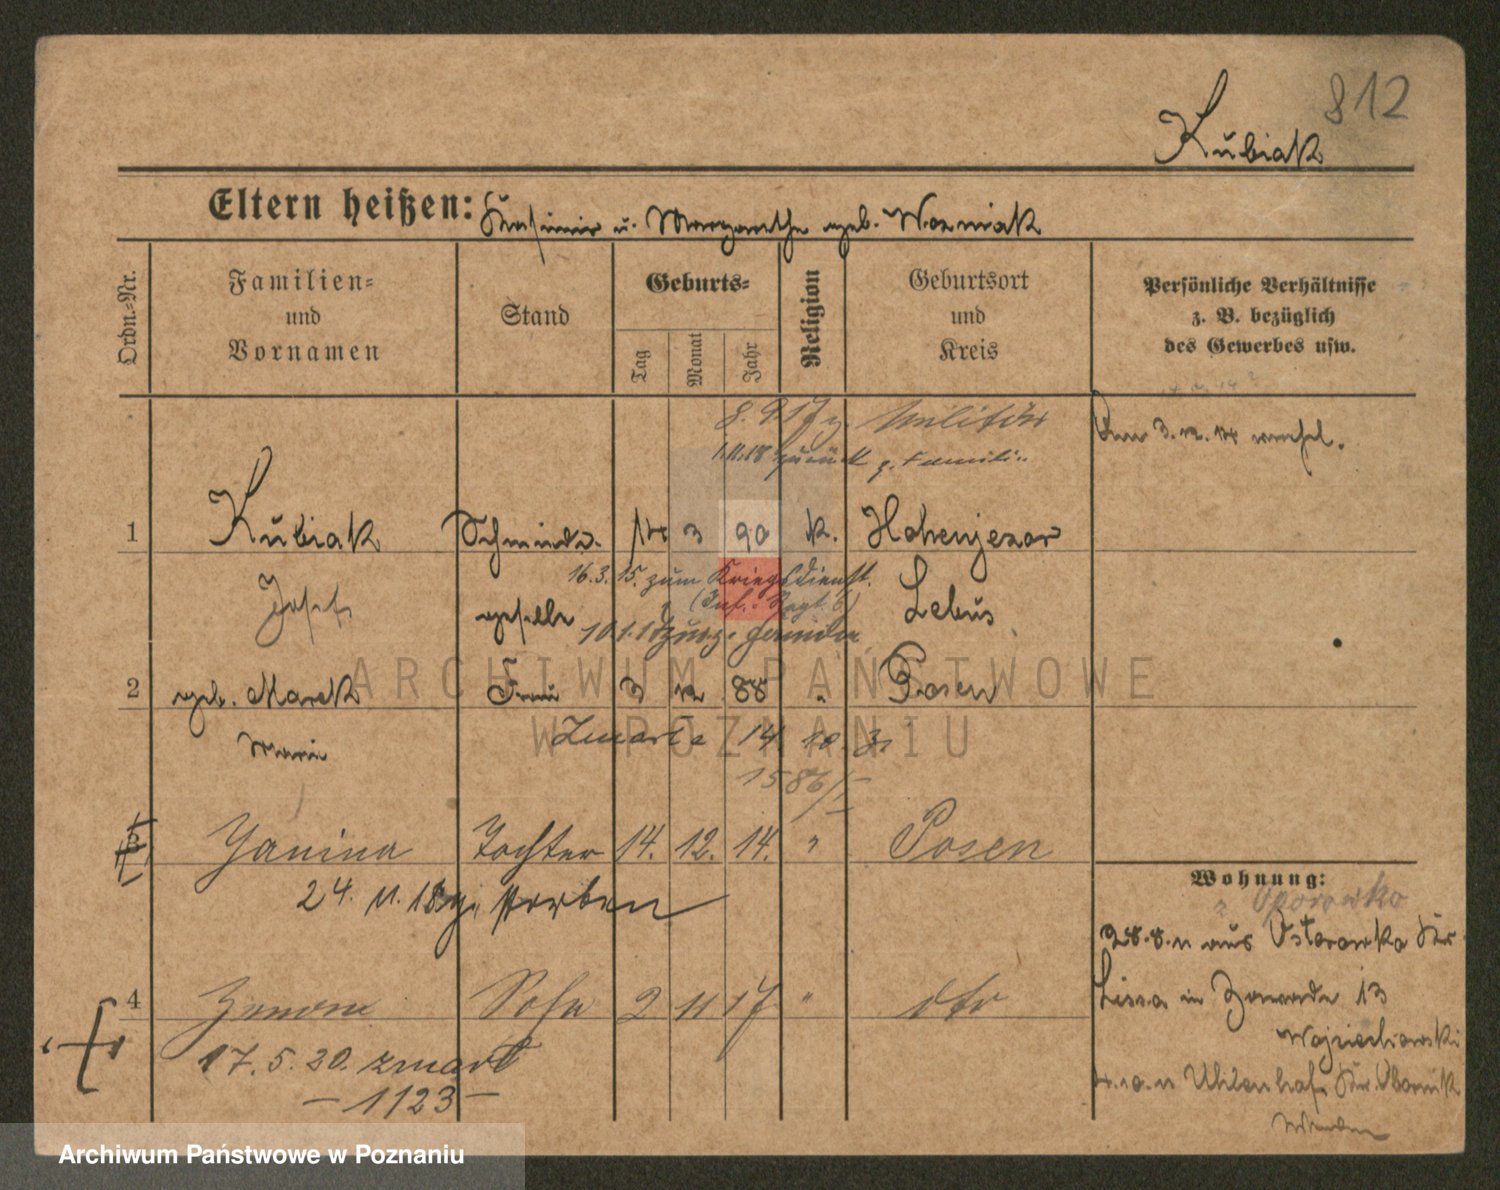 812
Kubiak
Eltern heißen: Kasimir u. Margarethe geb. Wozniak
Ordn.-Nr.
Familien- und Vornamen
Stand
Geburts-
Tag
Monat
Jahr
Religion
Geburtsort und Kreis
Persönliche Verhältnisse
z. B. bezüglich
des Gewerbes usw.
8. 9. 17 z. Militär
1.11.18 zurück z. Familie
1 Kubiak Schmiede- 14 3 90 k. Hohenjesar
16.3.15. zum Kriegsdienst.
(Inf.-Regt. 6)
Josef geselle Lebus
10.1.17 zurz.
ARCHIWUM PAŃSTWOWE
W POZNANIU
2 geb. Marek Frau 3 12 88 " Posen
Zmarła 14 10 31
Marie
1586/I
3 Janina Tochter 14. 12. 14. " Posen
24. 11. 18 gestorben
4 Zenon Sohn 2 11 17 " dto
17. 5. 20. zmarł
- 1123 -
Wohnung:
28.8.11 aus Ostorowko Kr.
Lissa in 13
Wojciechowski
4.10.11 Uhlenhof Kr. Obornik
Archiwum Państwowe w Poznaniu